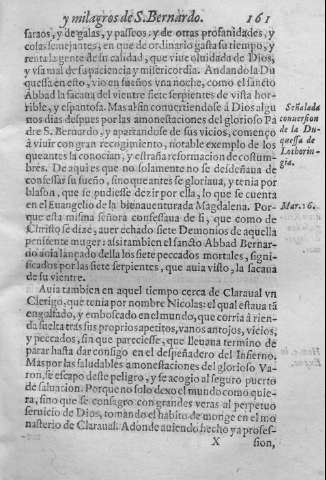 y milagros de S. Bernardo. 161
saraos, y de galas, y passeos: y de otras profanidades, y
cosas semejantes, en que de ordinario gasta su tiempo, y
renta la gente de su calidad, que viue oluidada de Dios,
y vsa mal de su paciencia y misericordia. Andando la Du
quessa en esto, vio en sueños vna noche, como el sancto
Abbad la sacaua del vientre siete serpientes de vista hor-
rible, y espantosa. Mas al fin conuertiendose à Dios algu
nos dias despues por las amonestaciones del glorioso Pa
dre S. Bernardo, y apartandose de sus vicios, començo
à viuir con gran recogimiento, notable exemplo de los
que antes la conocian, y estraña reformacion de costum-
bres. De aqui es que no solamente no se desdeñaua de
confessar su sueño, sino que antes se gloriaua, y tenia por
blason, que se pudiesse dezir por ella, lo que se cuenta
en el Euangelio de la bienauenturada Magdalena. Por-
que esta misma señora confessaua de si, que como de
Christo se dize, auer echado siete Demonios de aquella
penitente muger: assi tambien el sancto Abbad Bernar-
do auia lançado della los siete peccados mortales, signi-
ficados por las siete serpientes, que auia visto, la sacaua
de su vientre.
Auia tambien en aquel tiempo cerca de Claraual vn
Clerigo, que tenia por nombre Nicolas: el qual estaua tã
engolfado, y emboscado en el mundo, que corria à rien-
da suelta tràs sus proprios apetitos, vanos antojos, vicios,
y peccados, sin que pareciesse, que lleuaua termino de
parar hasta dar consigo en el despeñadero del Infierno.
Mas por las saludables amonestaciones del glorioso Va-
ron, se escapo deste peligro, y se acogio al seguro puerto
de saluacion. Porque no solo dexo el mundo como quie-
ra, sino que se consagro con grandes veras al perpetuo
seruicio de Dios, tomando el habito de monge en el mo
nasterio de Claraual. Adonde auiendo hecho ya profes-
X sion,
Señalada
conuersion
de la Du-
quessa de
Lothorin-
gia.
Mar. 16.